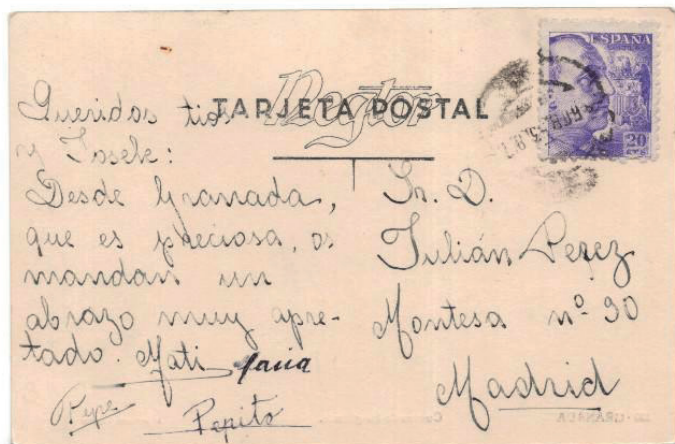 TARJETA POSTAL
ESPAÑA
20
Queridos tios
y Josele:
Desde Granada,
que es preciosa, os
mandan un
abrazo muy apre-
tado. Mati
Pepe
Pepito
Sr. D.
Julián Perez
Montesa nº 90
Madrid